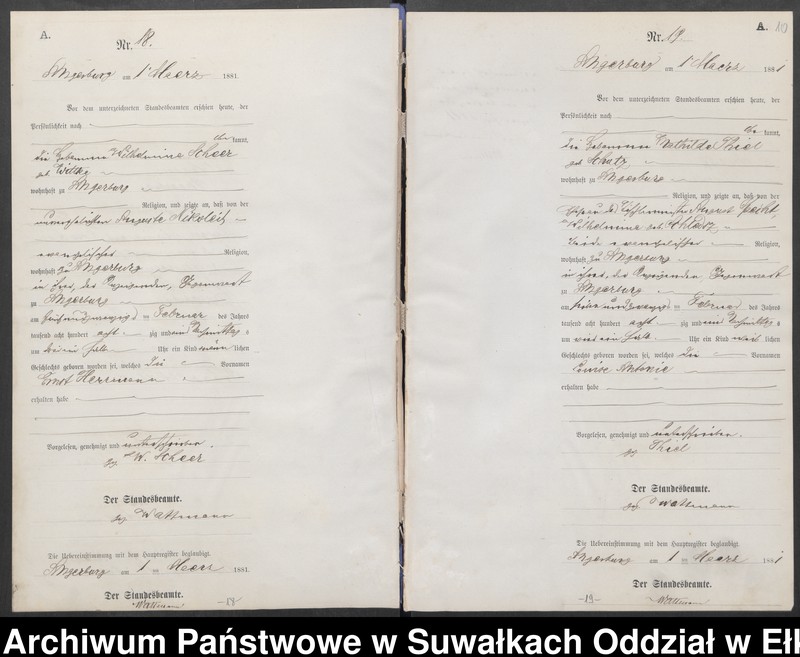 A.
Nr. 18.
Angerburg am 1 Maerz 1881.
Vor dem unterzeichneten Standesbeamten erschien heute, der
Persönlichkeit nach
kannt,
die Hebamme Wilhelmine Scheer
geb.
wohnhaft zu Angerburg
Religion, und zeigte an, daß von der
unverehelichten Auguste Nikoleit
evangelischer Religion,
wohnhaft zu Angerburg
in ihrer, der Anzeigenden, Gegenwart
zu Angerburg
am Februar des Jahres
tausend acht hundert acht zig und ein Nachmittags
um Uhr ein Kind männlichen
Geschlechts geboren worden sei, welches die Vornamen
Ernst Herrmann
erhalten habe
Vorgelesen, genehmigt und unterschrieben.
gz W. Scheer
Der Standesbeamte.
gz Wattmann
Die Uebereinstimmung mit dem Hauptregister beglaubigt.
Angerburg am 1 Maerz 1881.
Der Standesbeamte.
Wattmann
-18-
A. 10
Nr. 19
Angerburg am 1 Maerz 1881
Vor dem unterzeichneten Standesbeamten erschien heute, der
Persönlichkeit nach
kannt,
die Hebamme Mathilde Thiel
geb. Schatz
wohnhaft zu Angerburg
Religion, und zeigte an, daß von der
Ehefrau des August
Wilhelmine geb.
beide evangelischer Religion,
wohnhaft zu Angerburg
in ihrer, der Anzeigenden, Gegenwart
zu Angerburg
am Februar des Jahres
tausend acht hundert acht zig und ein Nachmittags
um Uhr ein Kind weiblichen
Geschlechts geboren worden sei, welches die Vornamen
Louise Antonie
erhalten habe
Vorgelesen, genehmigt und unterschrieben.
gz Thiel
Der Standesbeamte.
gz Wattmann
Die Uebereinstimmung mit dem Hauptregister beglaubigt.
Angerburg am 1 Maerz 1881
Der Standesbeamte.
-19- Wattmann
Archiwum Państwowe w Suwałkach Oddział w Eł